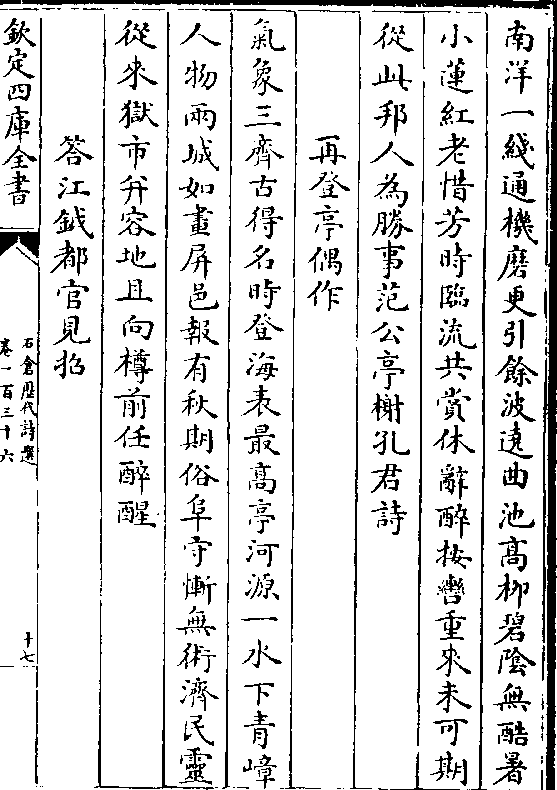 南洋一綫通機磨更引餘波遶曲池高柳碧陰無酷暑
小蓮紅老惜芳時臨流共賞休辭醉按轡重來未可期
從此邦人為勝事范公亭榭孔君詩
再登亭偶作
氣象三齊古得名時登海表最高亭河源一水下青嶂
人物兩城如畫屏邑報有秋期俗阜守慚無術濟民靈
從來獄市并容地且向樽前任醉醒
答江鉞都官見招
欽定四庫全書
石倉歷代詩選
卷一百三十六
十七